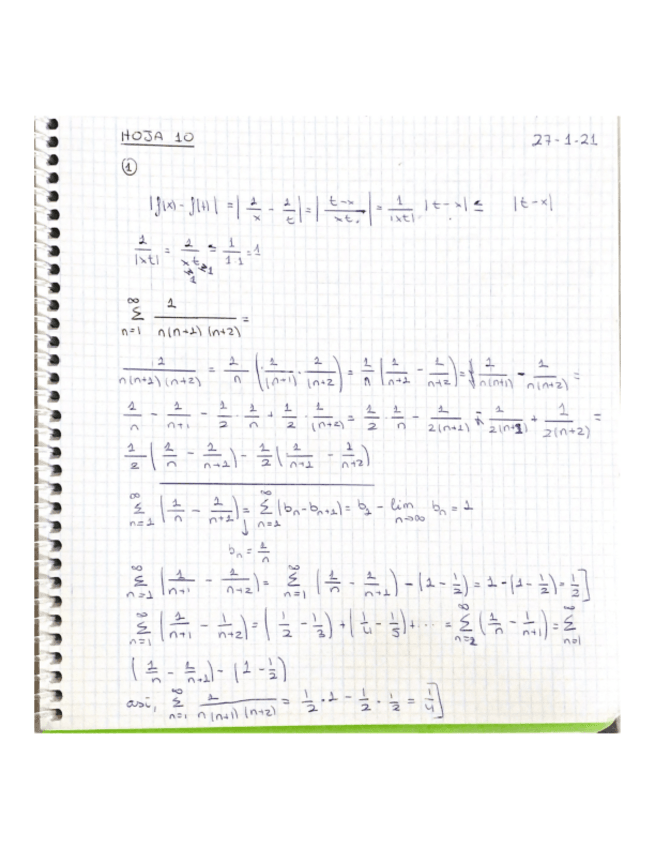 HOJA 10 27-1-21
①
|f(x) - f(t)| = |1/x - 1/t| = |t-x/xt| = 1/|xt| · |t-x| ≤ |t-x|
1/|xt| = 1/xt ≤ 1/1·1 = 1
∞ Σ n=1 1/n(n+1)(n+2) =
1/n(n+1)(n+2) = 1/n (1/(n+1) · 1/(n+2)) = 1/n (1/n+1 - 1/n+2) = 1/n(n+1) - 1/n(n+2) =
1/n - 1/n+1 - 1/2 · 1/n + 1/2 · 1/(n+2) = 1/2 · 1/n - 1/2(n+1) - 1/2(n+1) + 1/2(n+2) =
1/2 (1/n - 1/n+1) - 1/2 (1/n+1 - 1/n+2)
∞ Σ n=1 (1/n - 1/n+1) = ∞ Σ n=1 (bn - bn+1) = b1 - lim n→∞ bn = 1
bn = 1/n
∞ Σ n=1 (1/n+1 - 1/n+2) = ∞ Σ n=1 (1/n - 1/n+1) - (1 - 1/2) = 1 - (1 - 1/2) = 1/2]
∞ Σ n=1 (1/n+1 - 1/n+2) = (1/2 - 1/3) + (1/4 - 1/5) + ··· = ∞ Σ n=2 (1/n - 1/n+1) = ∞ Σ n=1
(1/n - 1/n+1) - (1 - 1/2)
así, ∞ Σ n=1 1/n(n+1)(n+2) = 1/2 · 1 - 1/2 · 1/2 = 1/4]